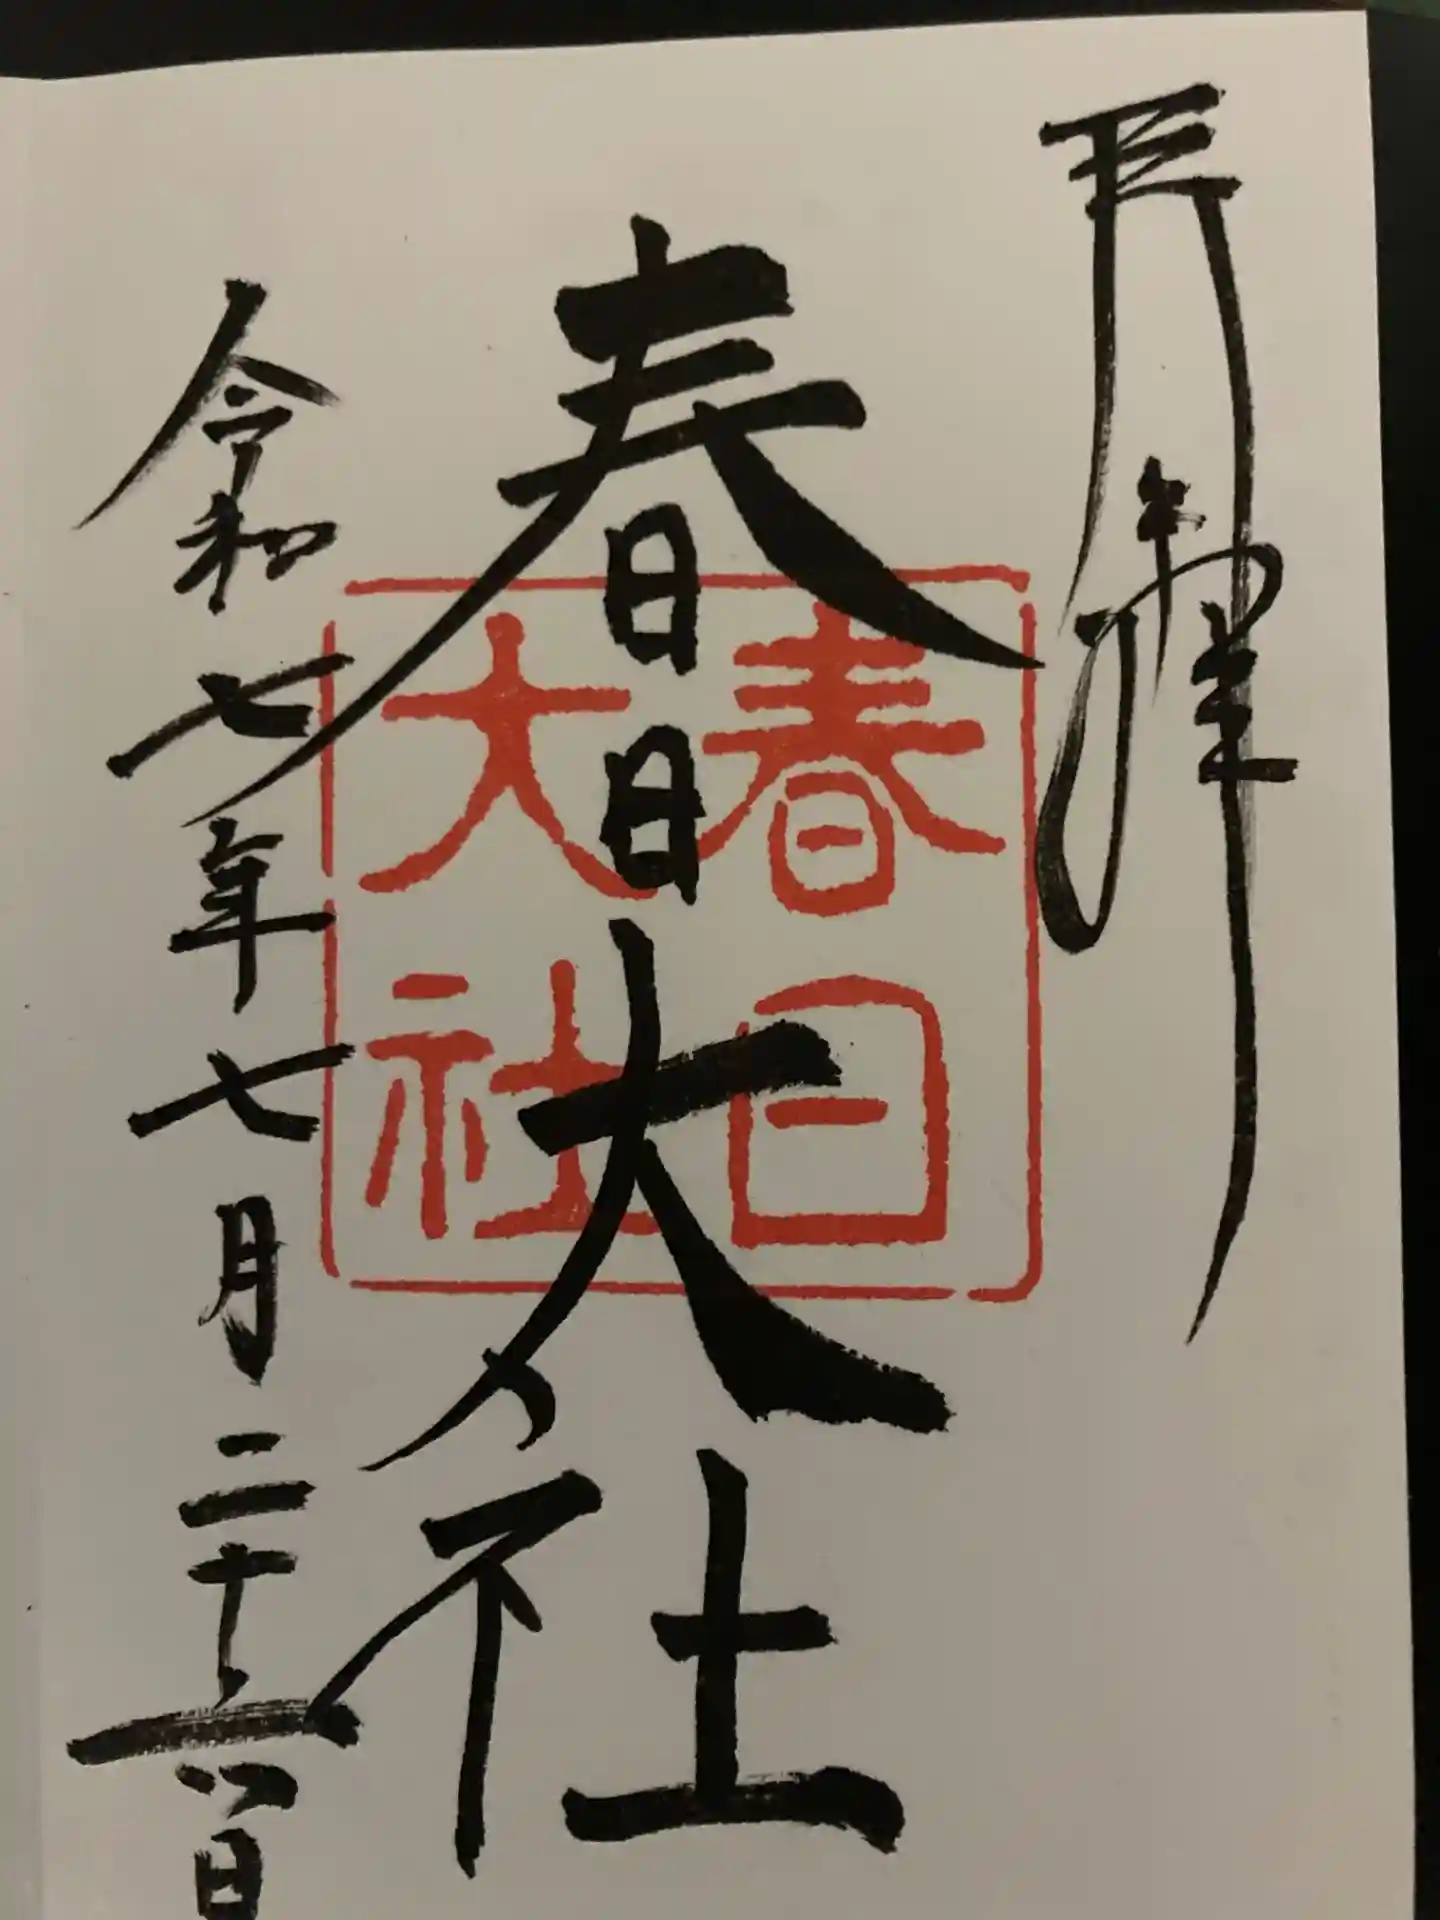 奉拝
春日大社
春日
大社
令和七年七月二十六日